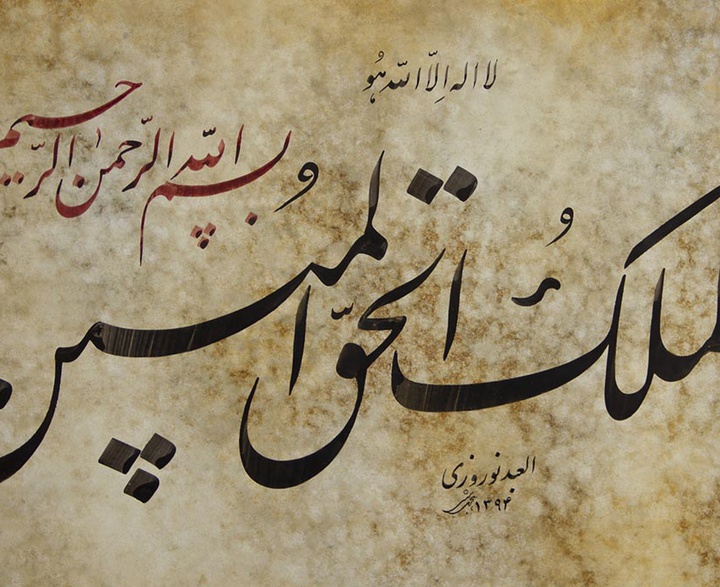 لا اله اِلّا اللّه هُو
بسم اللّه الرّحمن الرّحیم
الملكُ الحقّ المُبین
العبد نوروزی
۱۳۹۴